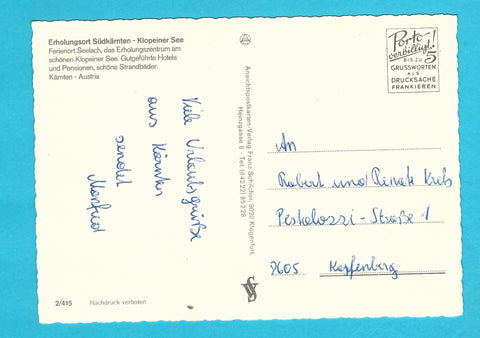 Erholungsort Südkärnten - Klopeiner See
Ferienort Seelach, das Erholungszentrum am
schönen Klopeiner See. Gutgeführte Hotels
und Pensionen, schöne Strandbäder.
Kärnten - Austria
Viele Urlaubsgrüße
aus Kärnten
sendet
Manfried
2/415
Nachdruck verboten
Ansichtspostkarten-Verlag Franz Schilcher, 9020 Klagenfurt,
Heinzgasse 6 - Tel. (0 42 22) 89 2 28
Porto-
verbilligt!
BIS ZU 5
GRUSSWORTEN
ALS
DRUCKSACHE
FRANKIEREN
An
Robert und Renate Krebs
Pestalozzi - Straße 1
8605 Kapfenberg